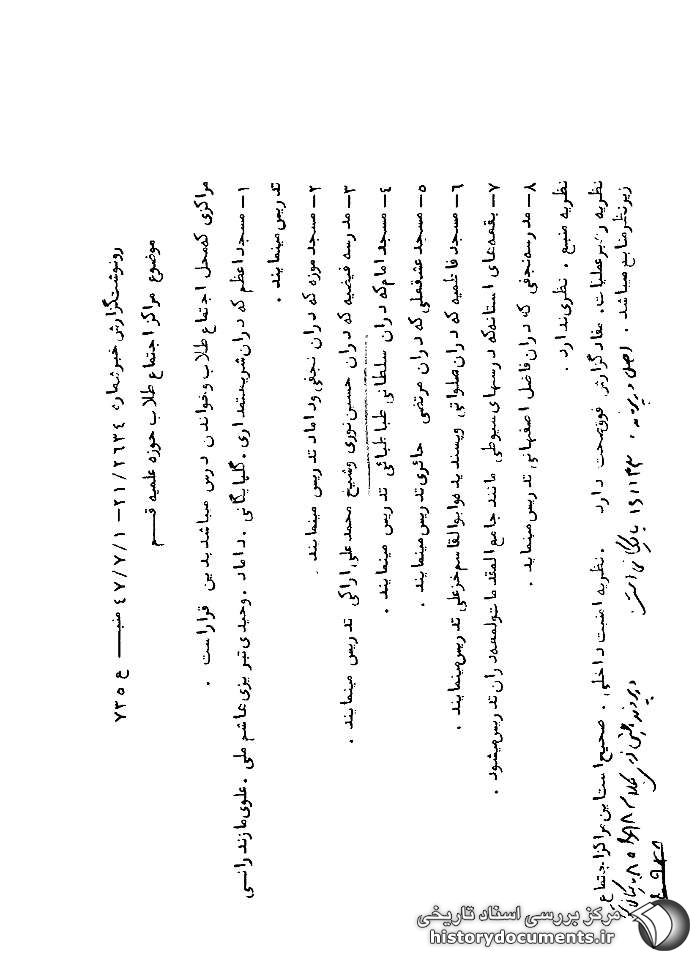 رونوشت گزارش خبر شماره ۲۱/۲۶۳٤ – ٤۷/۷/۱ منبـــع ۷۳۵
موضوع مراکز اجتماع طلاب حوزه علمیه قــم
مراکزی که محل اجتماع طلاب وخواندن درس میباشد بدین قرار است .
۱- مسجد اعظم که در ان شریعتمداری . گلپایگانی . داماد . وحیدی تبریزی هاشم ملی . علوی مازندرانــی
تدریس مینمایند .
۲- مسجد موزه که در ان نجفی وداماد تدریس مینمایند .
۳- مدرسه فیضیه که در ان حسین نوری وشیخ محمد علی اراکی تدریس مینمایند .
٤- مسجد امام که در ان سلطانی طباطبائی تدریس مینمایند .
۵- مسجد عشقعلی که در ان مرتضی حائری تدریس مینمایند .
۶- مسجد فاطمیه که در ان صلواتی وپسندیده وابوالقاسم خزعلی تدریس مینمایند .
۷- بقعه های استانه که درسهای سیوطی مانند جامع المقدمات ولمعه در ان تدریس میشود .
۸- مدرسه نجفی که در ان فاضل اصفهانی تدریس مینماید .
نظریه منبع . نظری ندارد .
نظریه رهبر عملیات . مفاد گزارش فوق صحت دارد . نظریه امنیت داخلی . صحیح است این مراکز اجتماع
زیر نظر منابع میباشد . اصل در پرونده
مرکز بررسی اسناد تاریخی
historydocuments.ir